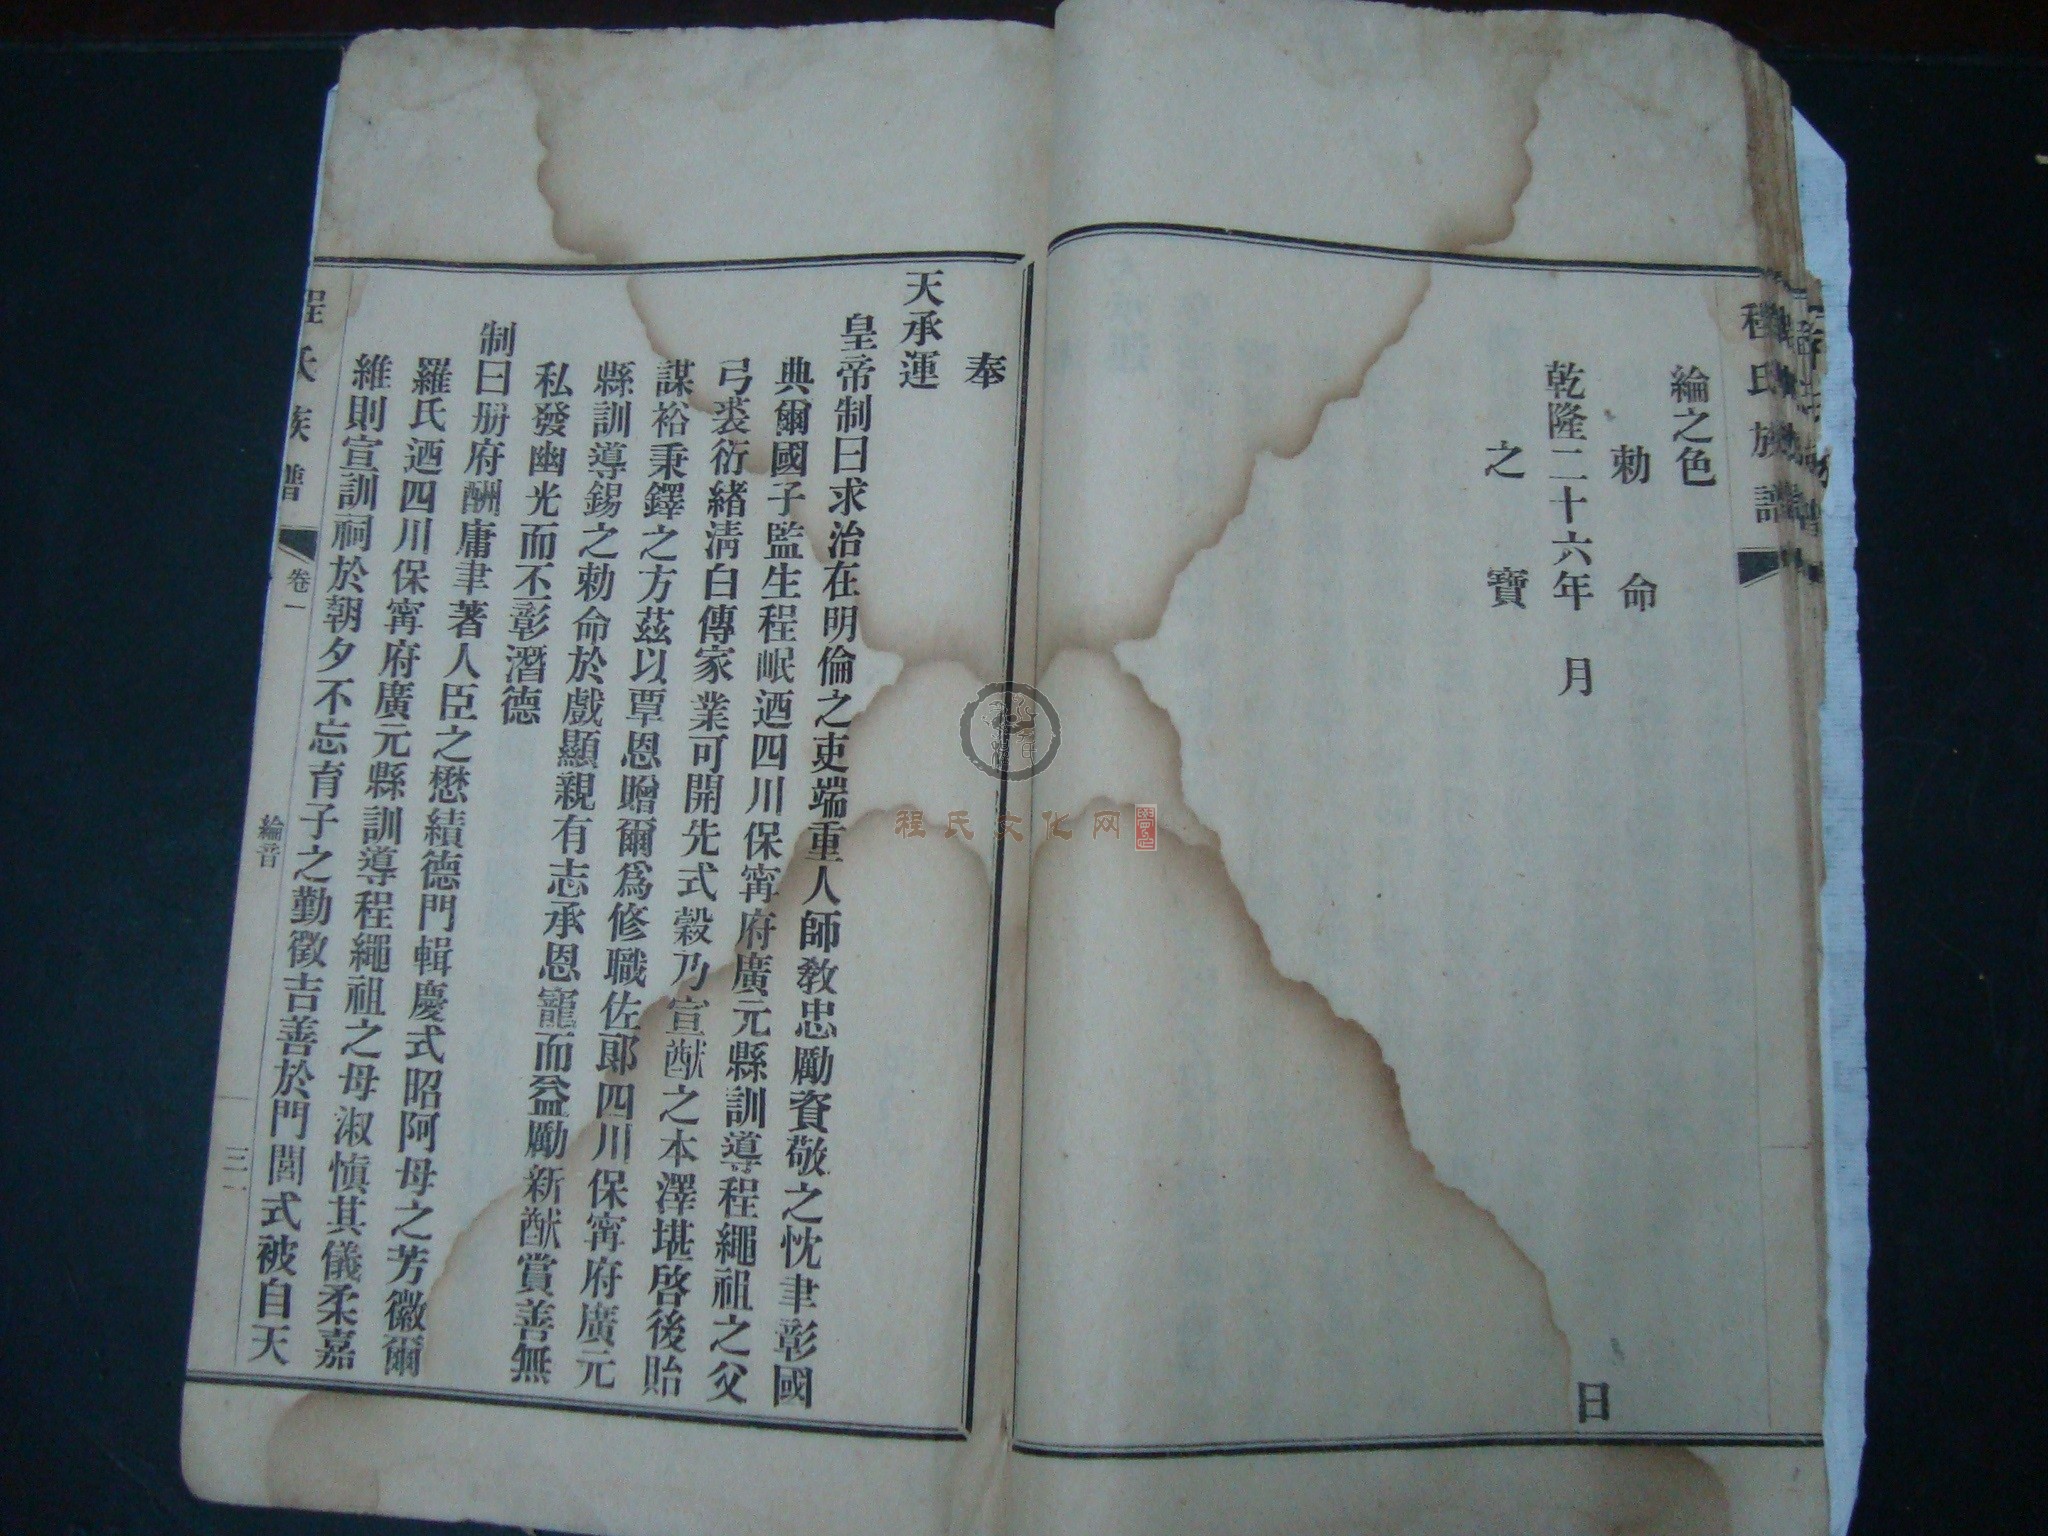 程氏族譜
綸之色
勅命
乾隆二十六年　月　日
之寶
奉
天承運
皇帝制曰求治在明倫之吏端重人師敎忠勵資敬之忱聿彰國
典爾國子監生程岷迺四川保甯府廣元縣訓導程繩祖之父
弓裘衍緒淸白傳家業可開先式穀乃宣猷之本澤堪啓後貽
謀裕秉鐸之方茲以覃恩贈爾爲修職佐郞四川保甯府廣元
縣訓導錫之勅命於戲顯親有志承恩寵而益勵新猷賞善無
私發幽光而不彰潛德
制曰册府酬庸聿著人臣之懋績德門輯慶式昭阿母之芳徽爾
羅氏迺四川保甯府廣元縣訓導程繩祖之母淑愼其儀柔嘉
維則宣訓祠於朝夕不忘育子之勤徵吉善於門閭式被自天
程氏族譜
卷一
綸音
程氏文化网